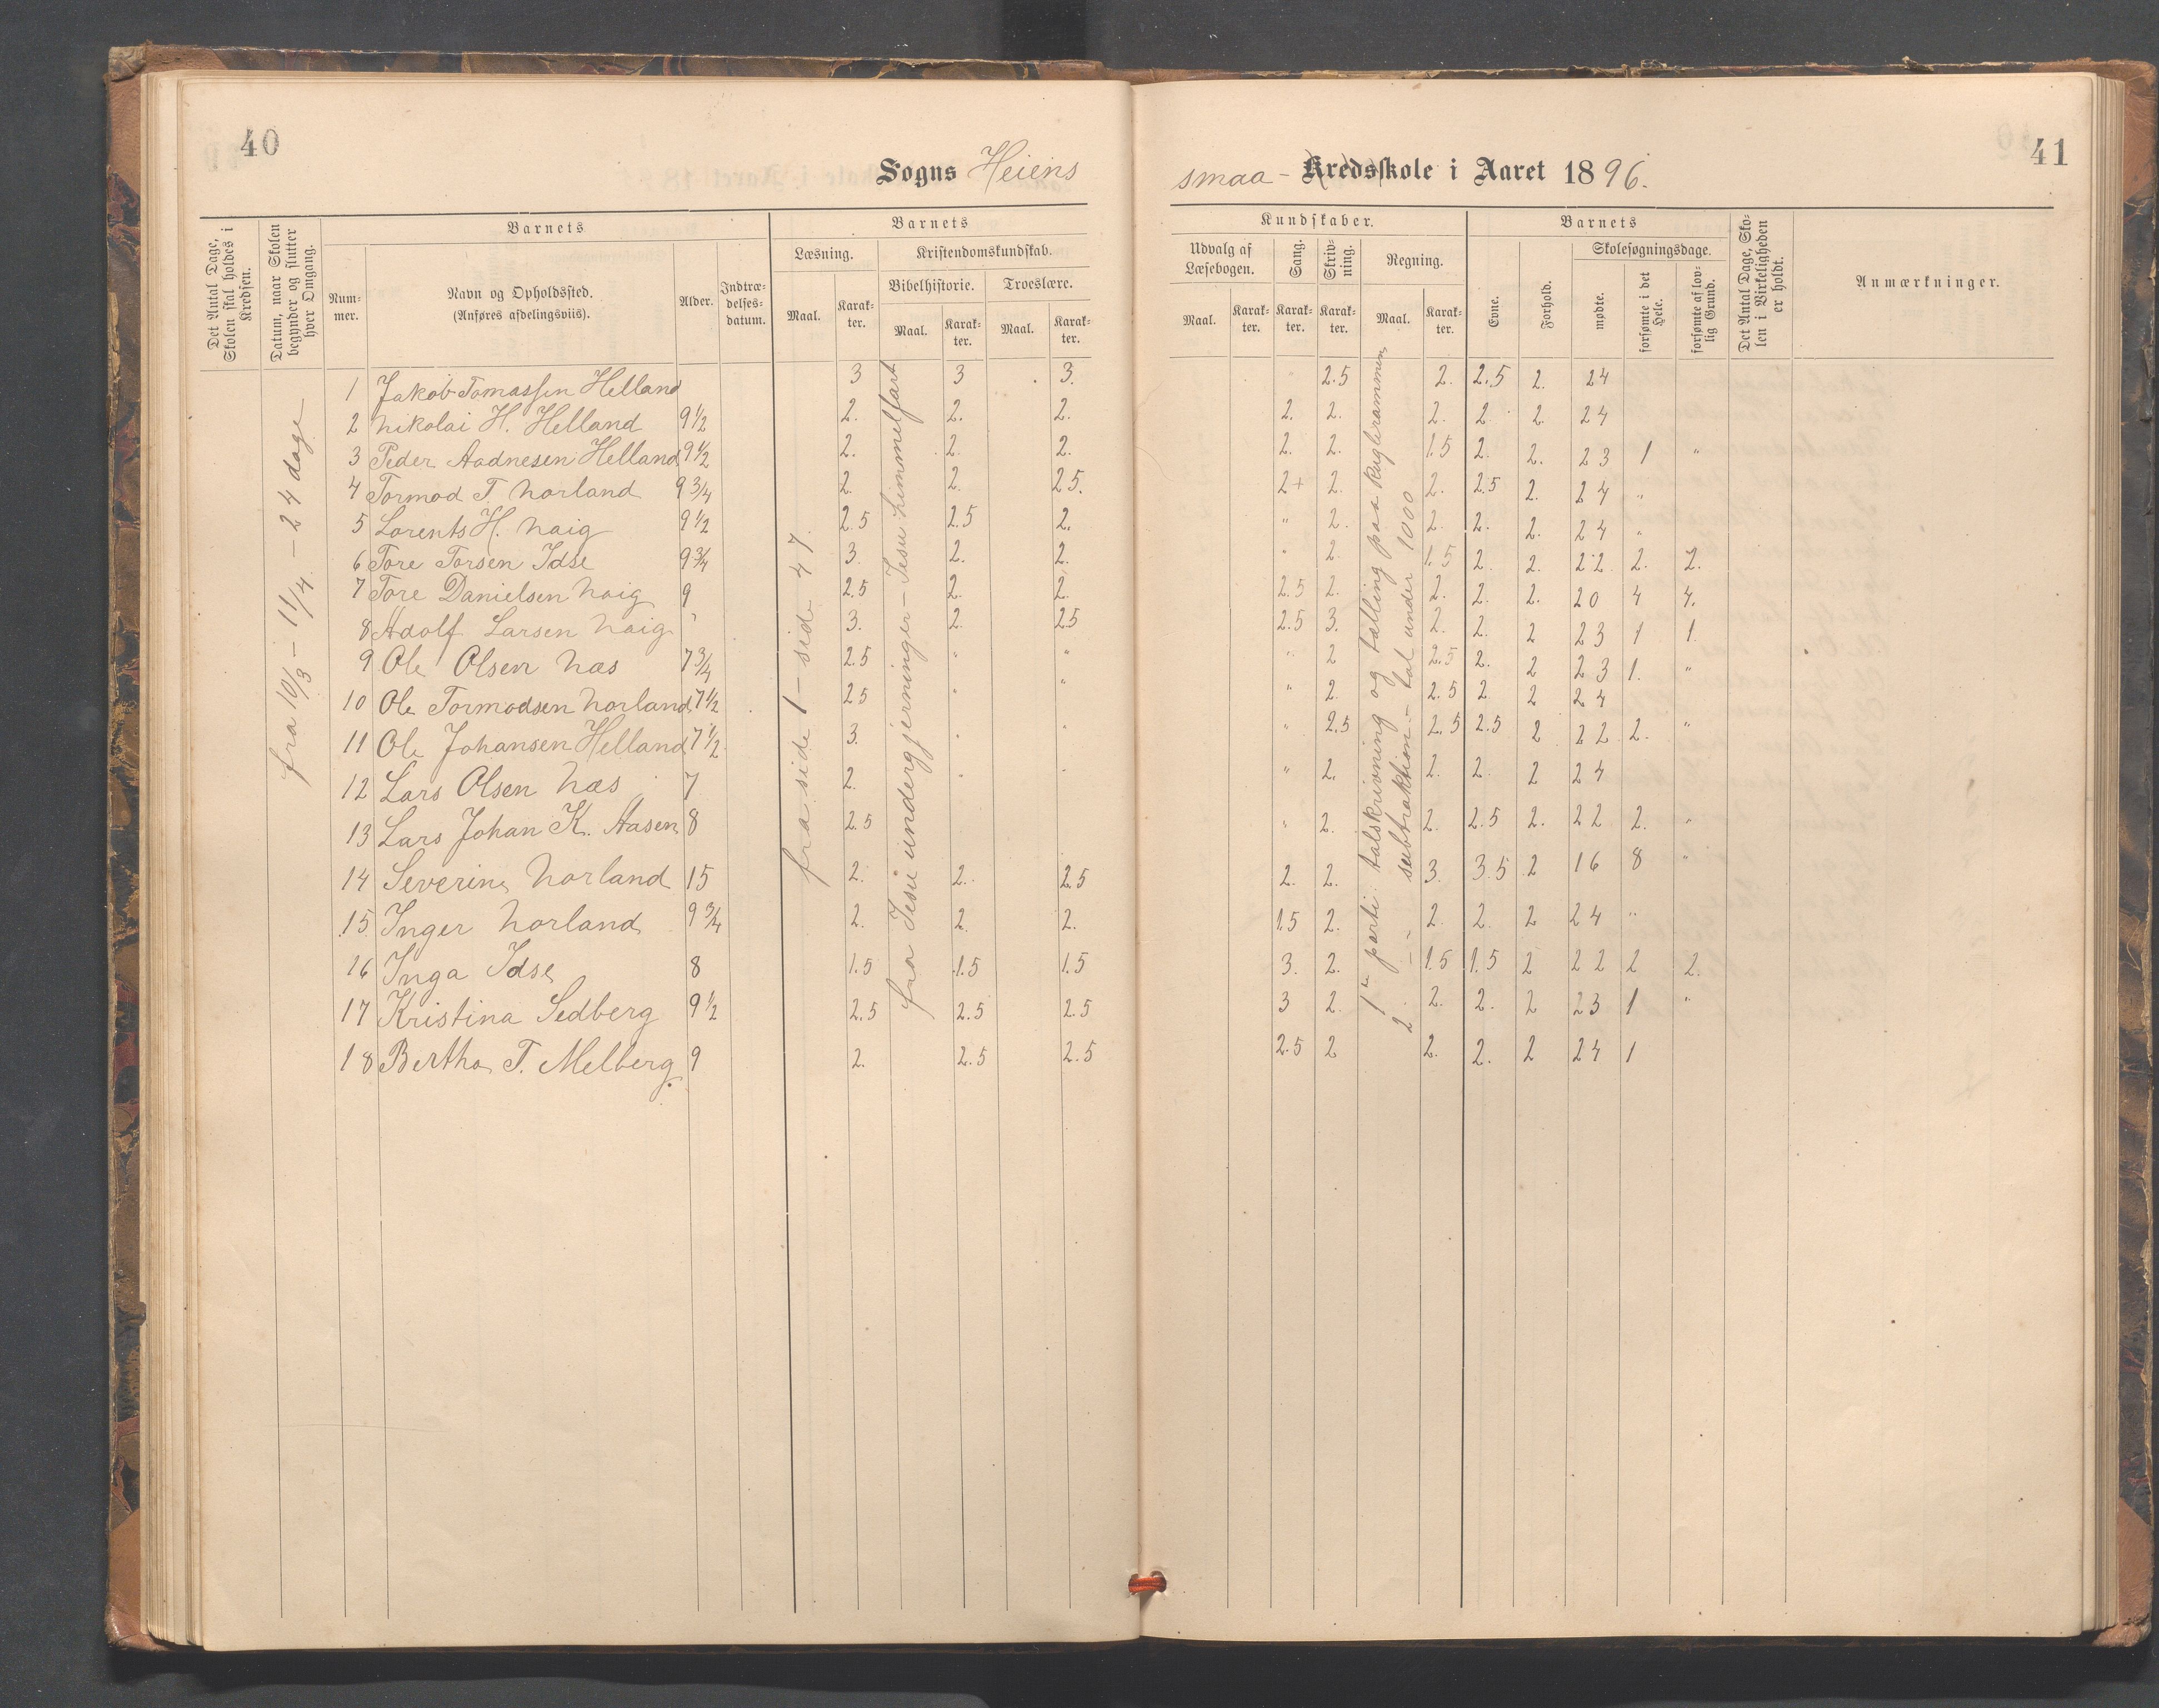 40
Sogns Heiens
Det Antal Dage, Skolen skal holdes i Kredsen.
Datum, naar Skolen begynder og slutter hver Omgang.
Barnets
Barnets
Num-mer.
Navn og Opholdssted.
(Anføres afdelingsviis).
Alder.
Indtræ-delses-datum.
Læsning.
Kristendomskundskab.
Bibelhistorie. Troeslære.
Maal. Karak-ter. Maal. Karak-ter. Maal. Karak-ter.
fra 10/3 – 11/4 – 24 dage
fra side 1 – side 47.
fra Jesu undergjerninger – Jesu himmelfart
1 Jakob Tomassen Helland 3 3 3.
2 Nikolai H. Helland 9 1/2 2. 2. 2.
3 Peder Aadnesen Helland 9 1/2 2. 2. 2.
4 Tormod T. Norland 9 3/4 2. 2. 2 5.
5 Lorents H. Haig 9 1/2 2.5 2.5 2.
6 Tore Torsen Idse 9 3/4 3. 2. 2.
7 Tore Danielsen Haig 9 2.5 2. 2.
8 Adolf Larsen Haig " 3. 2. 2.5
9 Ole Olsen Næs 7 3/4 2.5 " "
10 Ole Tormodsen Norland 7 1/2 2.5 " "
11 Ole Johansen Helland 7 1/2 3. " "
12 Lars Olsen Næs 7 2. " "
13 Lars Johan K. Aasen 8 2.5
14 Severine Norland 15 2. 2. 2.5
15 Inger Norland 9 3/4 2. 2. 2.
16 Inga Idse 8 1.5 1.5 1.5
17 Kristina Sedberg 9 1/2 2.5 2.5 2.5
18 Bertha T. Melberg 9 2. 2.5 2.5
41
smaa- Kredsskole i Aaret 1896.
Kundskaber.
Barnets
Udvalg af Læsebogen.
Sang.
Skriv-ning.
Regning.
Evne.
Forhold.
Skolesøgningsdage.
mødte.
forsømte i det Hele.
forsømte af lov-lig Grund.
Det Antal Dage, Sko-len i Virkeligheden er holdt.
Anmærkninger.
Maal. Karak-ter. Karak-ter. Karak-ter. Maal. Karak-ter.
1te parti: talskrivning og tælling paa kuglerammen
2 – – subtraktion – tal under 1000
2.5 2. 2.5 2. 24
2. 2. 2. 2. 2. 24
2. 2. 1.5 2. 2. 23 1 "
2+ 2. 2. 2.5 2. 24 "
" 2. 2. 2. 2. 24 "
" 2. 1.5 2. 2. 22. 2. 2.
2.5 2. 2. 2. 2. 20 4 4.
2.5 3. 2. 2. 2 23 1 1.
" 2 2.5 2. 2 23 1. "
" 2. 2.5 2 2 24
" 2.5 2.5 2.5 2 22 2. "
" 2. 2. 2. 2 24
" 2. 2. 2.5 2. 22 2. "
2. 2. 3. 3.5 2 16 8 "
1.5 2. 2. 2. 2 24 "
3. 2. 1.5 1.5 2 22 2 2.
3 2. 2. 2. 2 23 1 "
2.5 2 2. 2. 2 24 1